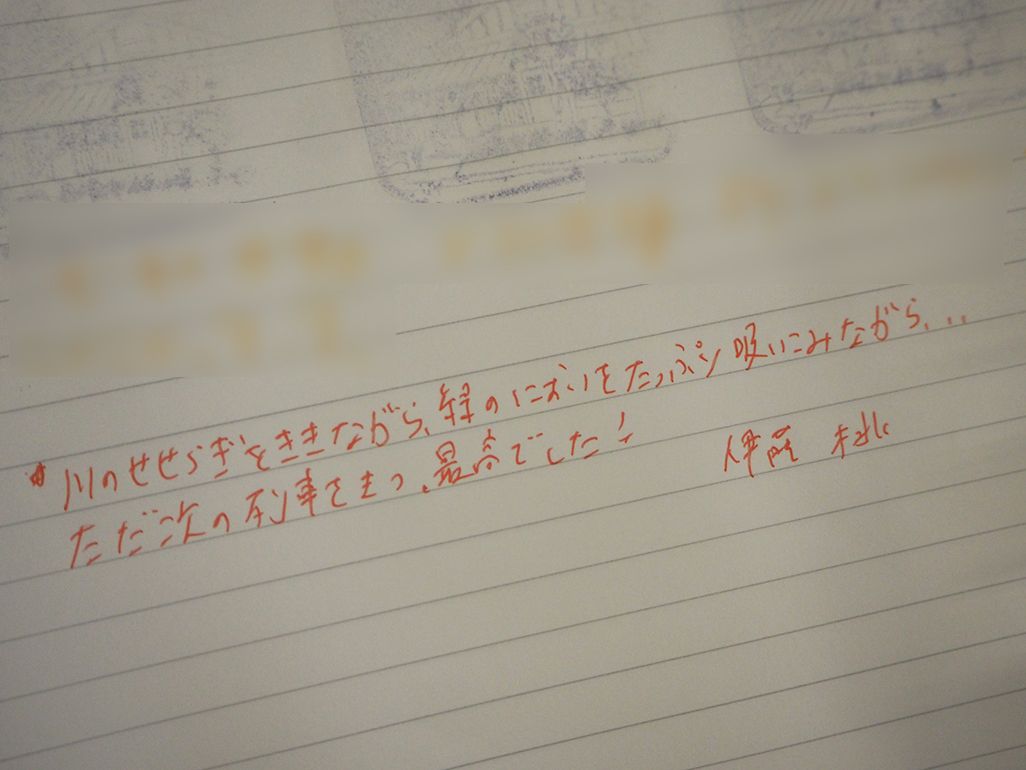 * 川のせせらぎをききながら、緑のにおいをたっぷり吸いこみながら...
ただ次の列車をまつ、最高でした!
伊藤